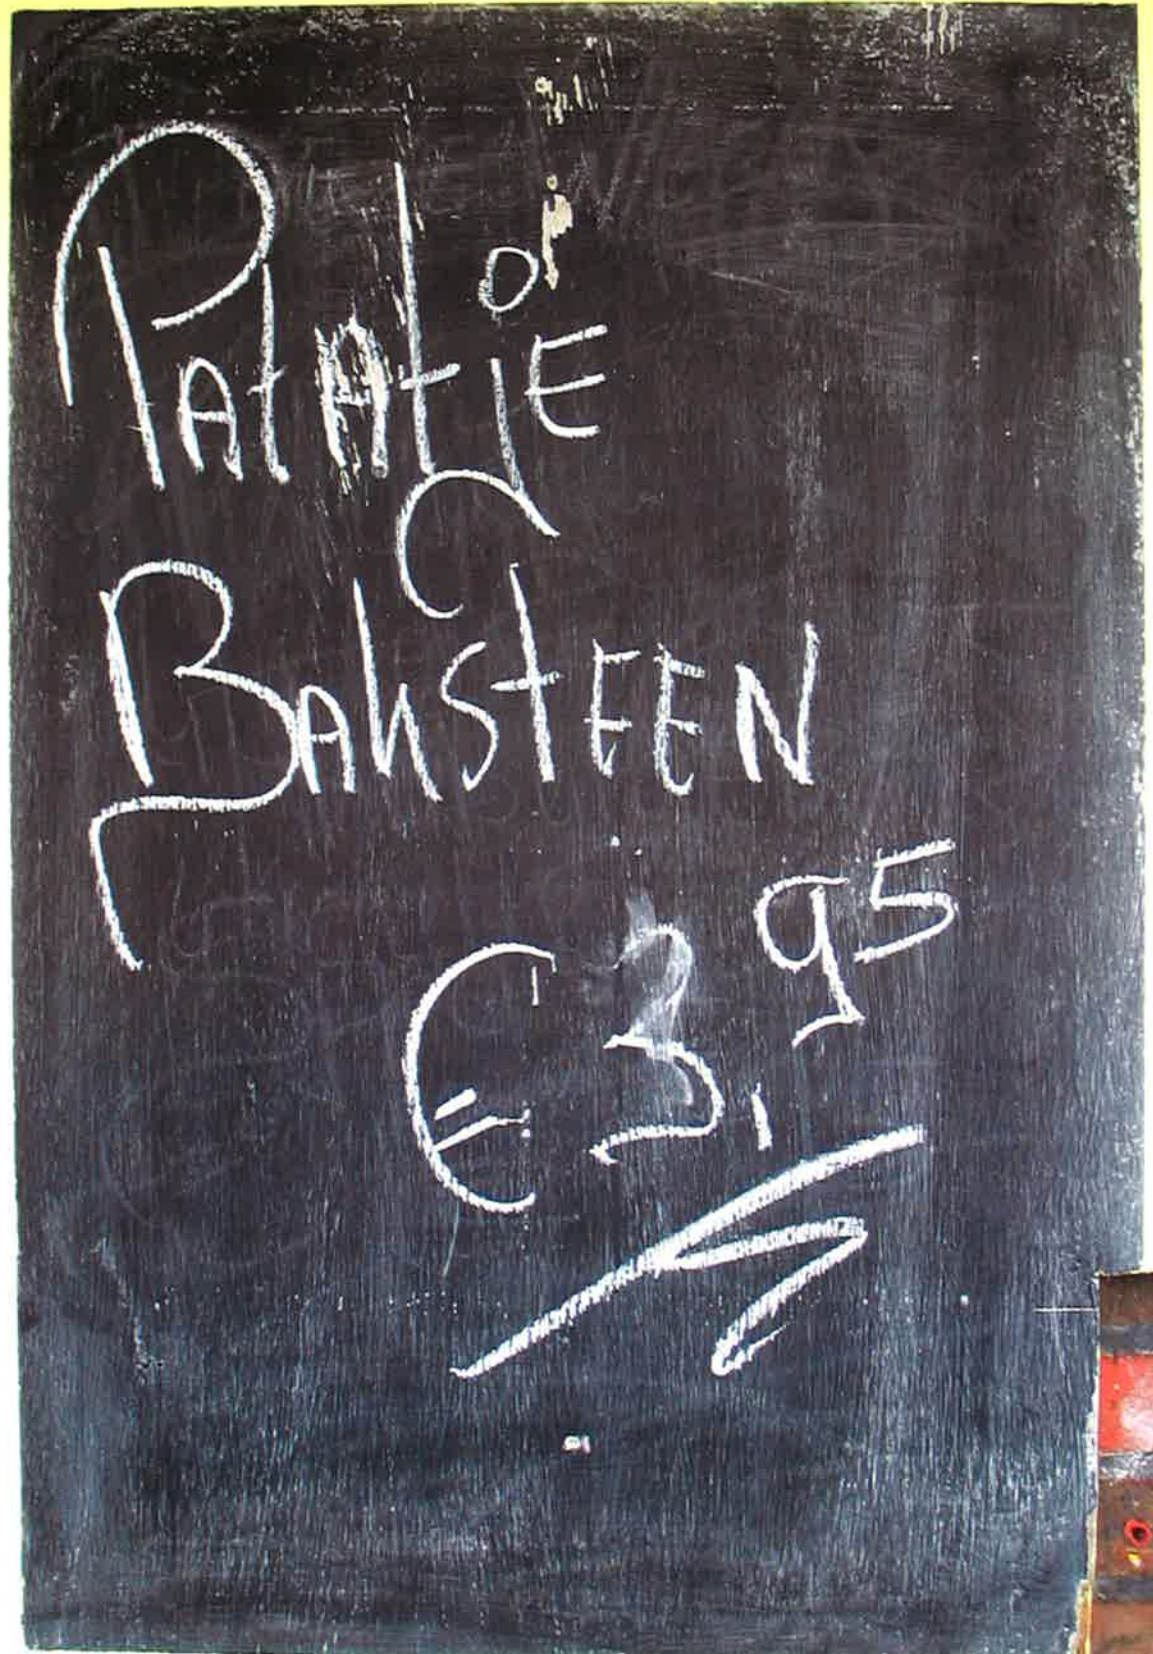 Patatje
Baksteen
€3,95